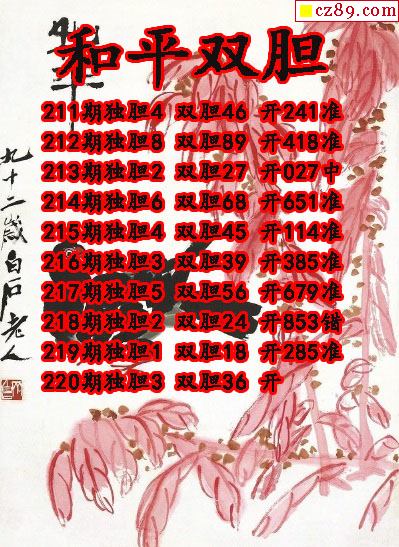 cz89.com
和平双胆
211期独胆4 双胆46 开241准
212期独胆8 双胆89 开418准
213期独胆2 双胆27 开027中
214期独胆6 双胆68 开651准
215期独胆4 双胆45 开114准
216期独胆3 双胆39 开385准
217期独胆5 双胆56 开679准
218期独胆2 双胆24 开853错
219期独胆1 双胆18 开285准
220期独胆3 双胆36 开
和平
九十二岁白石老人